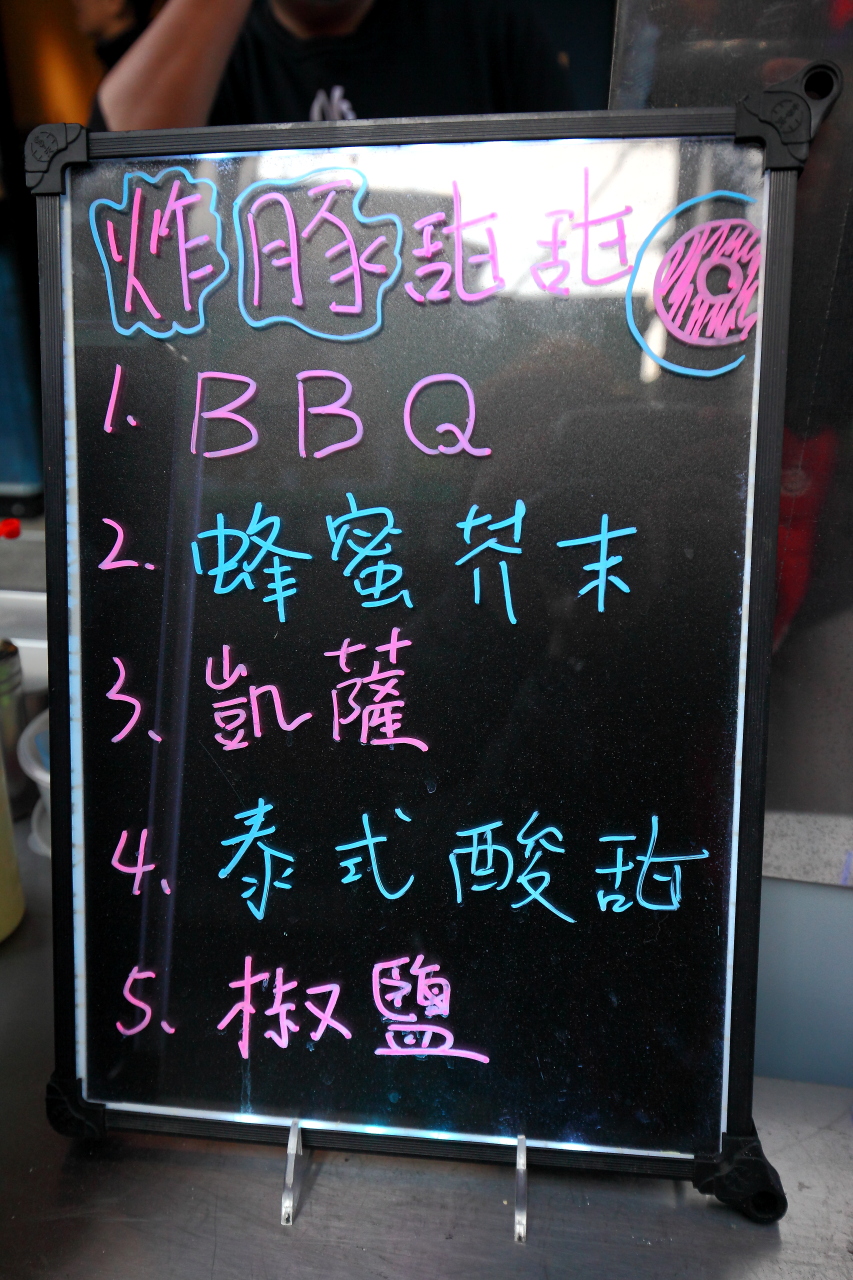 炸豚甜甜
1. BBQ
2. 蜂蜜芥末
3、凱薩
4、泰式酸甜
5、椒鹽